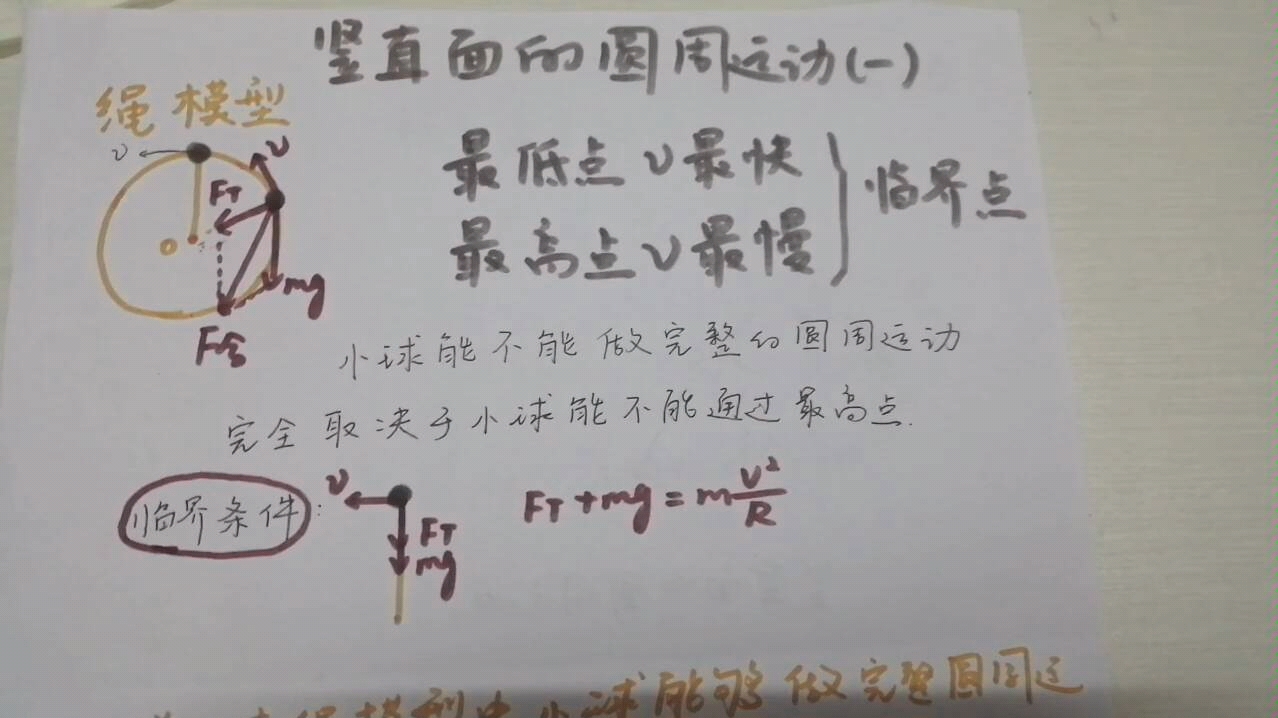 竖直面的圆周运动(一)
绳模型
v
v
FT
O
mg
F合
最低点v最快
最高点v最慢
临界点
小球能不能做完整的圆周运动
完全取决于小球能不能通过最高点.
临界条件:
v
FT
mg
FT+mg=m\frac{v²}{R}
绳模型中小球能够做完整圆周运